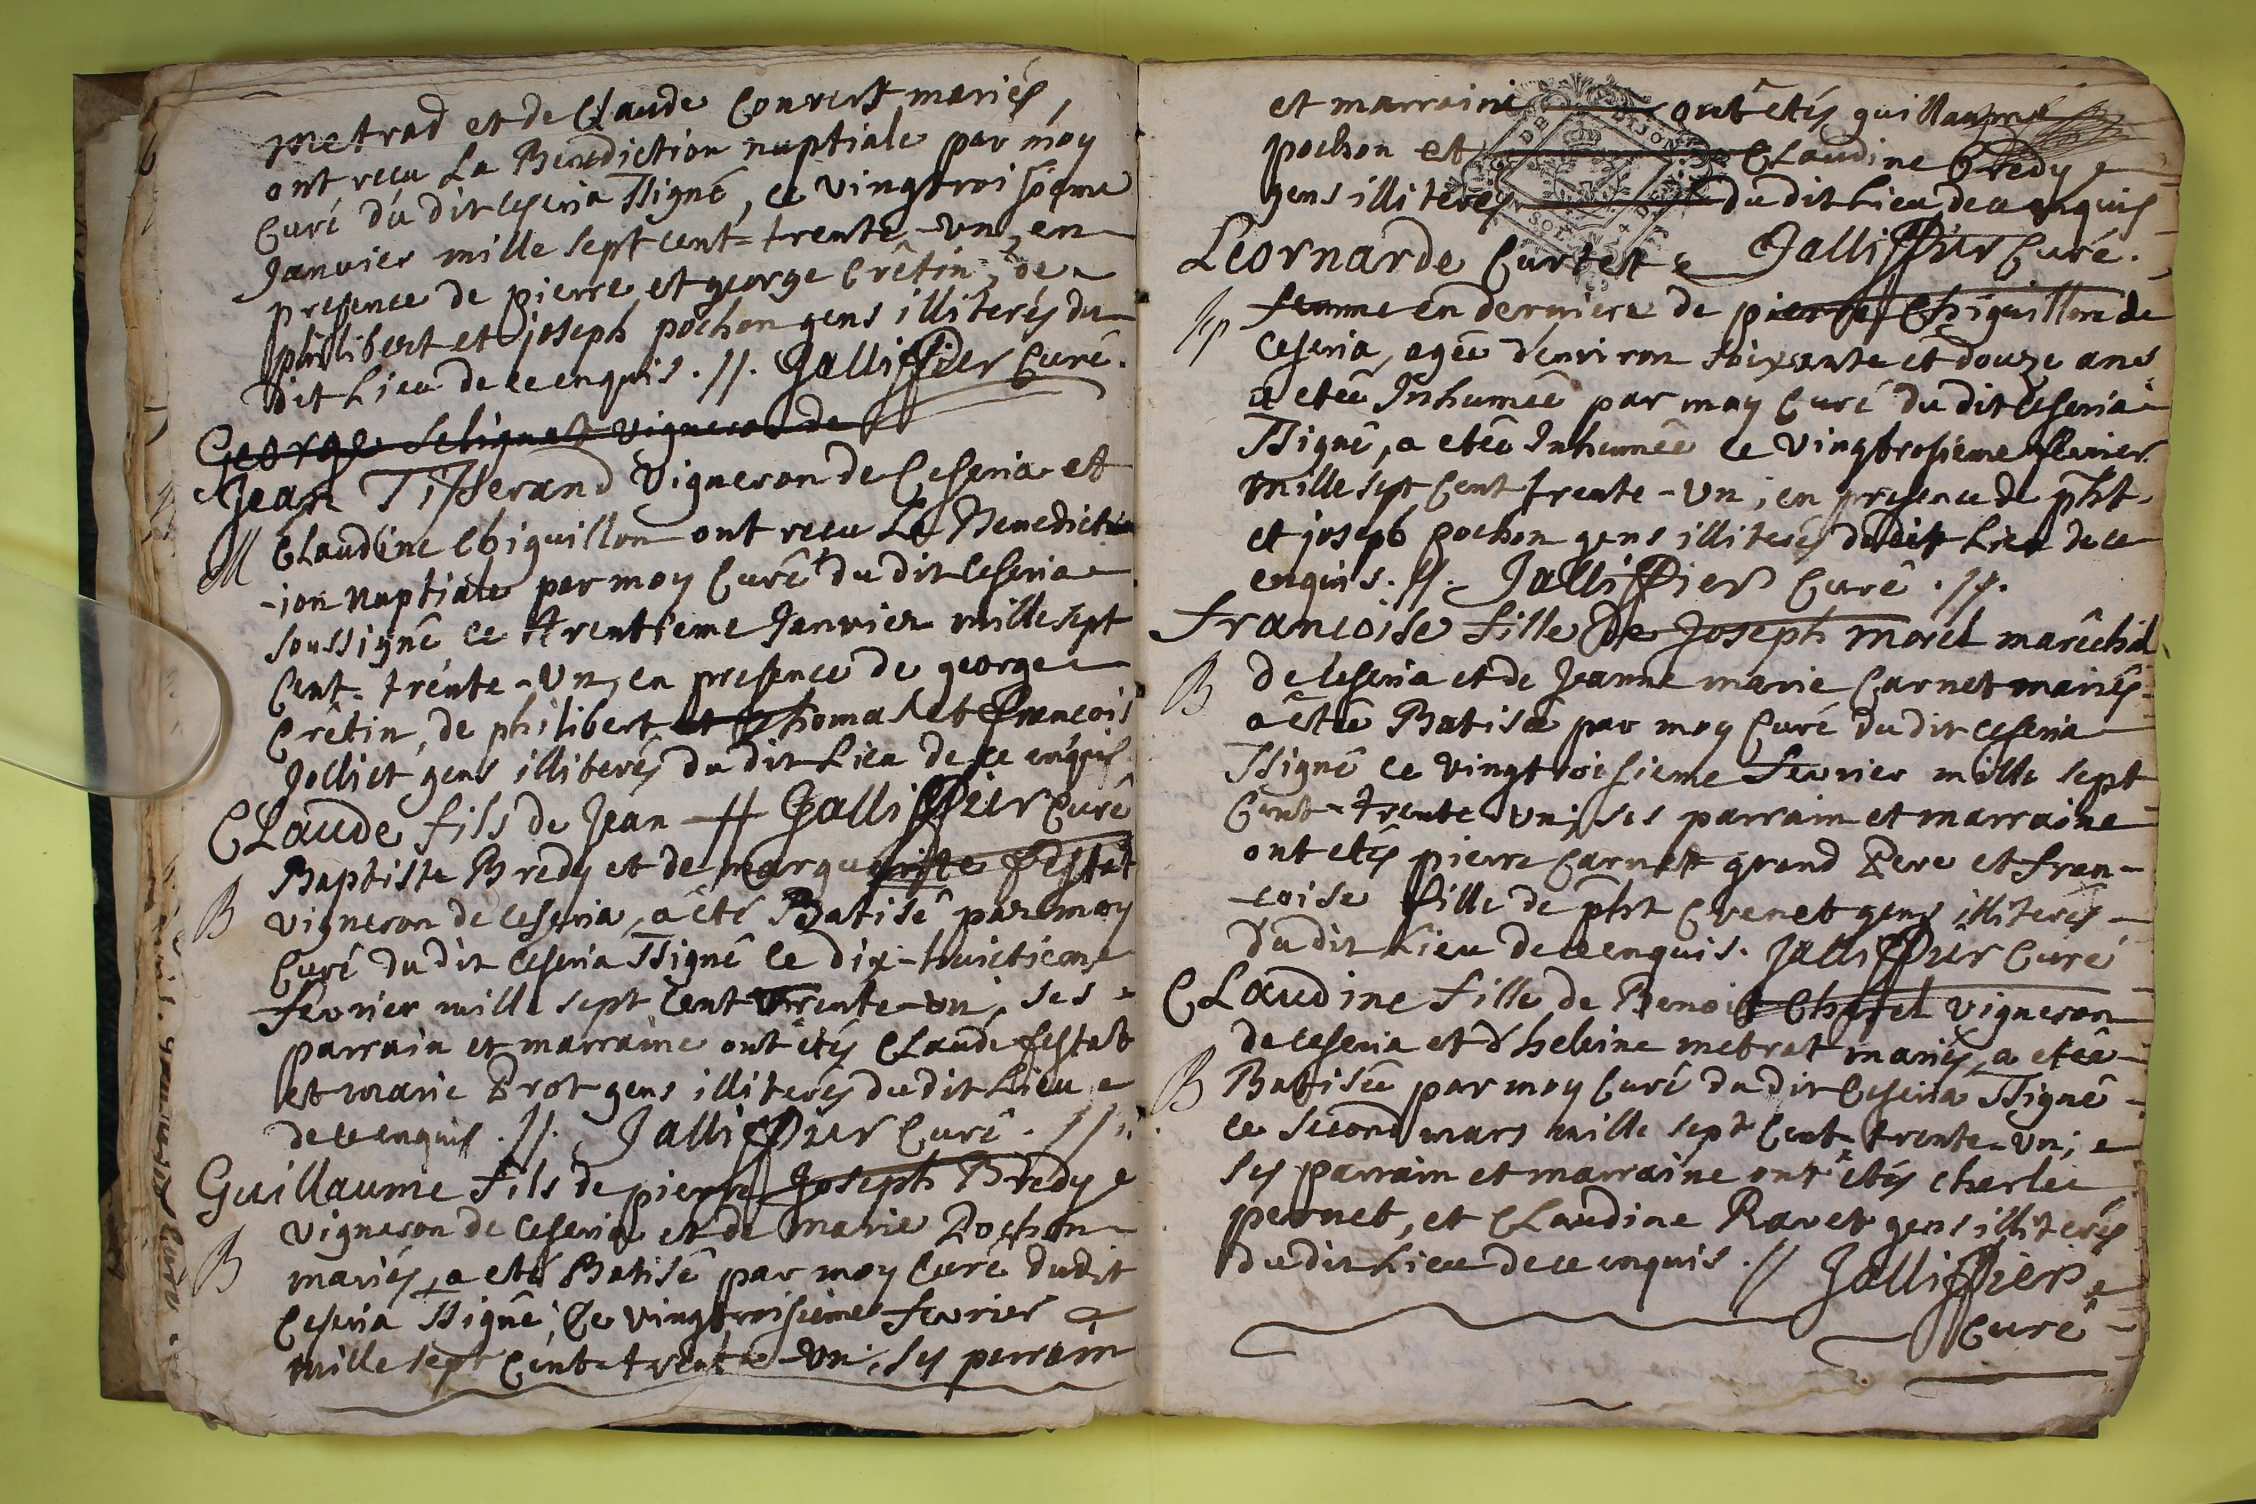 metrad et de Claude Convert mariés,
ont recu La Benediction nuptiale par moy
Curé du dit ceseria ssigné, ce vingtroisieme
Janvier mille sept cent = trente - un, en
presence de pierre et george Crêtin, de
philibert et joseph pochon gens illiterés du
dit Lieu de ce enquis . //. Jalliffier Curé.
George Selignat vigneron de
Jean Tisserand Vigneron de Ceseria et
M
CLaudine Chiguillon ont recu La Benedict
-ion nuptiale par moy Curé du dit Ceseria
soussigné ce trentieme Janvier mille sept
Cent = trente - Un, en presence de george
Crêtin, de philibert et thomas et francois
Jolliet gens illiterés du dit Lieu de ce enquis
CLaude fils de Jean -- // Jalliffier Curé
Baptiste Bredy et de marguerite festat
B
vigneron de ceseria, a été Batisé par moy
Curé du dit ceseria ssigné le dix-huictieme
fevrier mille sept Cent trente - un, ses
parrain et marraine ont étés CLaude festat
et marie Prot gens illiterés du dit Lieu
de ce enquis . //. Jalliffier Curé . //.
Guillaume fils de pierre Joseph Bredy
vigneron de ceseria et de marie Pochon
B
mariés, a eté Batisé par moy Curé dudit
Ceseria ssigné, Ce vingtroisieme fevrier
mille sept Cent = trente - Un, ses parrain
et marraine ont étés guillaume
pochon et CLaudine Bredy
gens illiterés du dit Lieu de ce enquis
Leornarde Curtet Jalliffier Curé.
femme en derniere de pierre Chiguillon de
Ceseria, agée d'environ soixante et douze ans
a etée Inhumée par moy Curé du dit Ceseria
ssigné, a etée Inhumée ce vingtrosieme fevrier
mille sept Cent trente - un, en presence de pht.
et joseph pochon gens illiterés dudit Lieu de ce
enquis . //. Jalliffier Curé . //.
francoise fille de Joseph morel maréchal
B
de ceseria et de Jeanne marie Carnet mariés
a étée Batisée par moy Curé du dit ceseria
ssigné ce vingtroisieme fevrier mille sept
Cent = trente Un, ses parrain et marraine
ont etés pierre Carnet grand Pere et fran-
-coise fille de pht Cvenet gens illiterés
du dit Lieu de ce enquis. Jalliffier Curé
CLaudine fille de Benoit Chatel vigneron
de ceseria et d'heleine metrat mariés, a etée
B
Batisée par moy Curé du dit Ceseria ssigné
ce second mars mille sept Cent = trente = Un;
ses parrain et marraine ont étés charle
pernet, et CLaudine Ravet gens illiterés
du dit Lieu de ce enquis . // Jalliffier
Curé